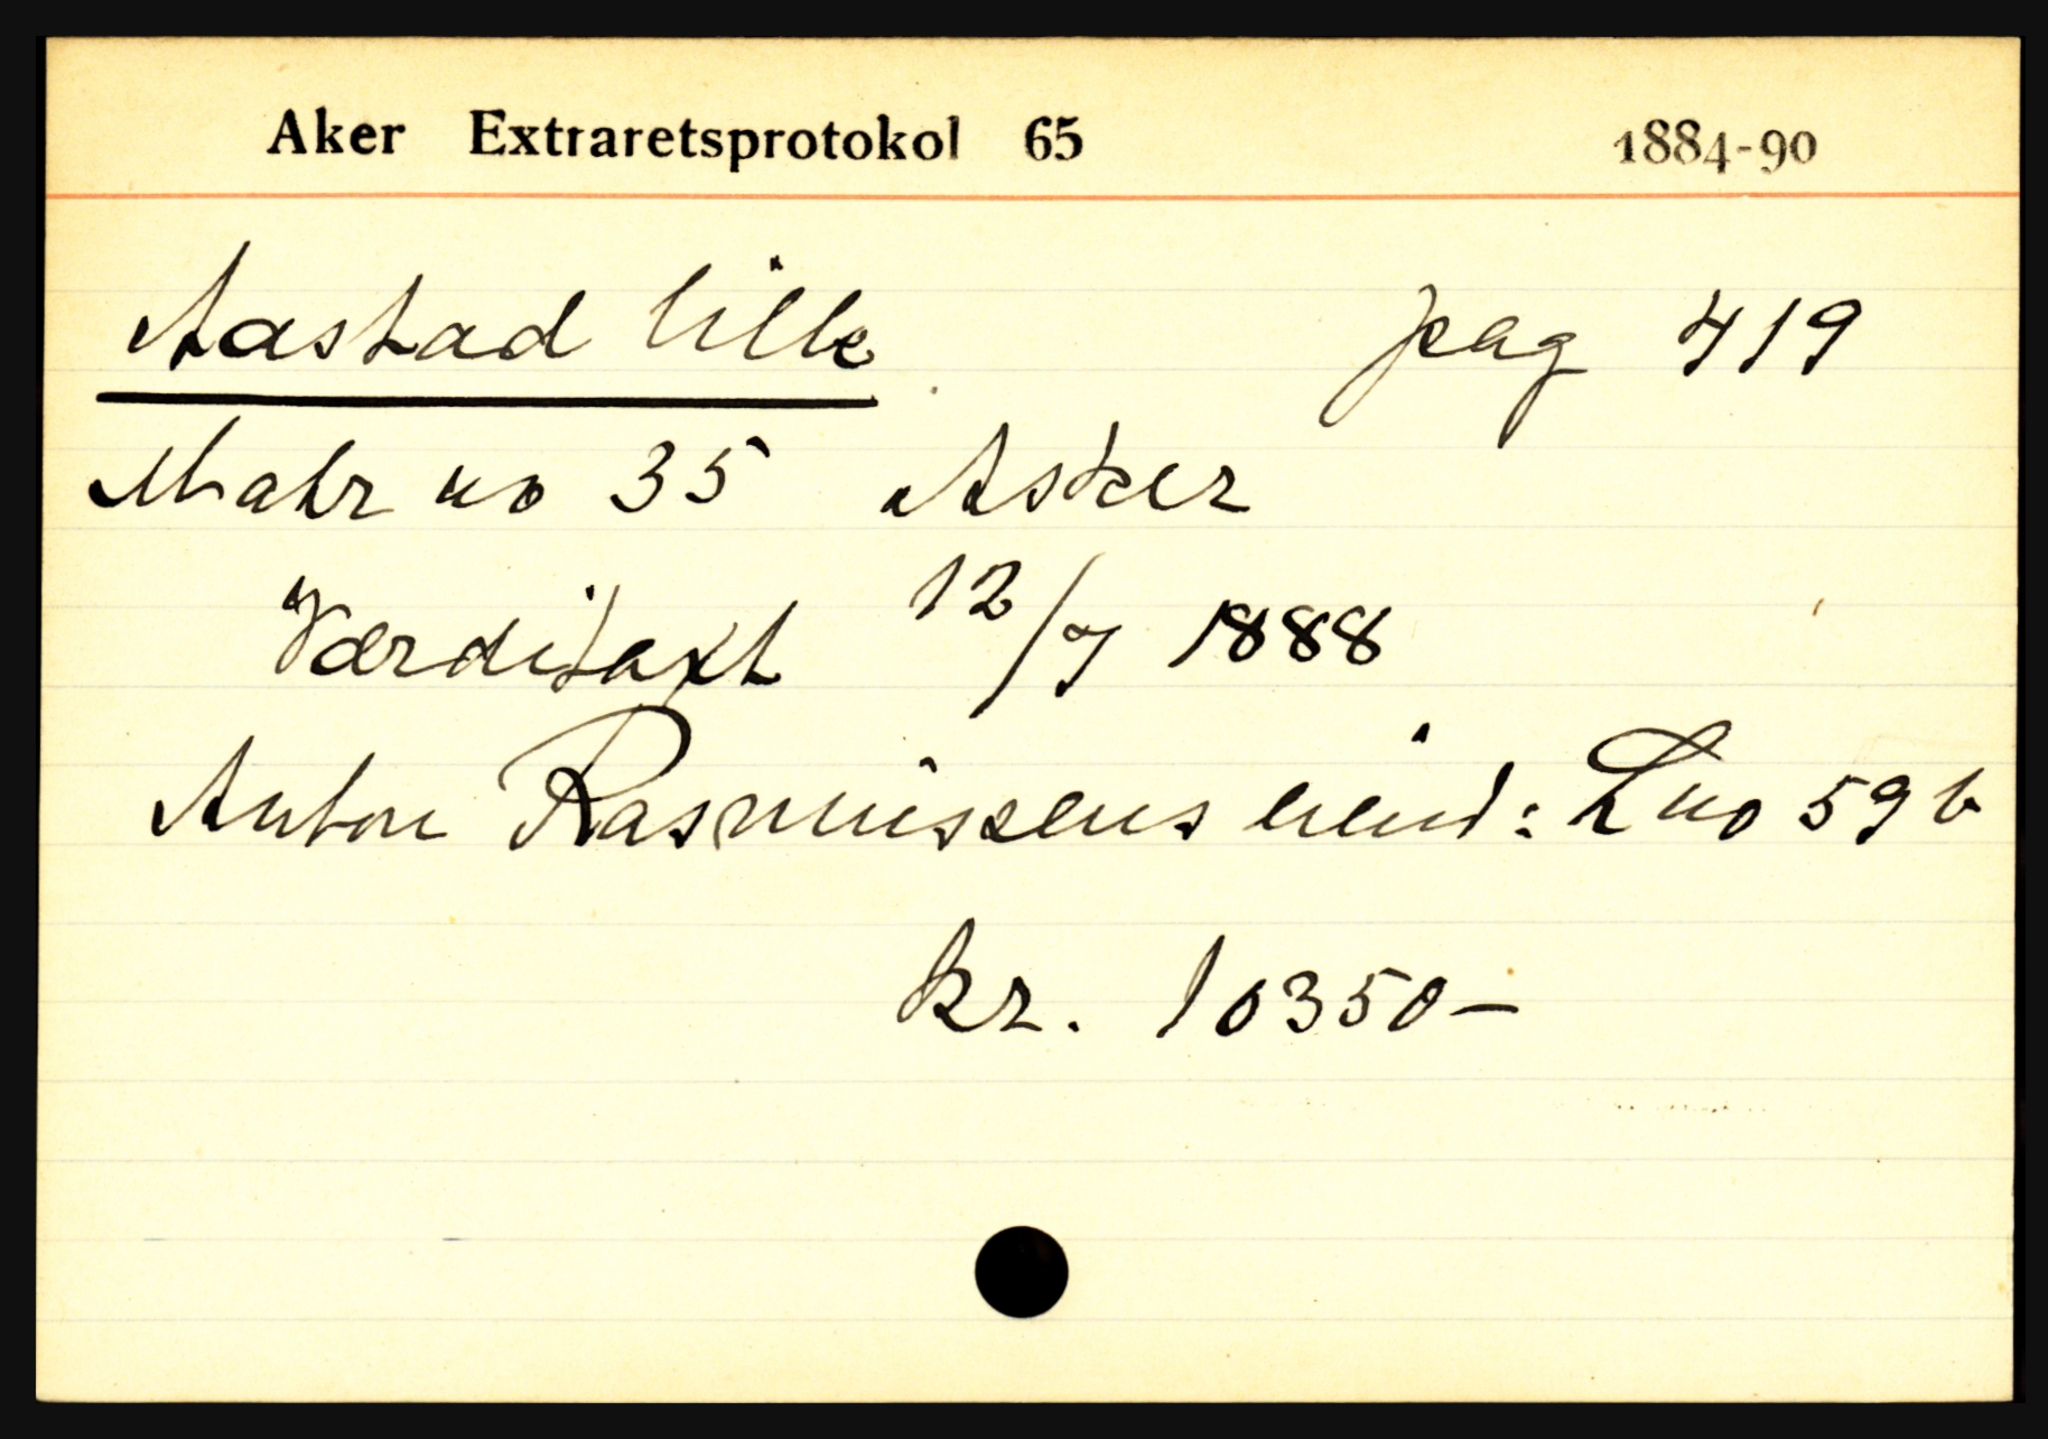 Aker Extraretsprotokol 65 1884-90
Aastad lille pag 419
Matr no 35 Asker
Værditaxt 12/7 1888
Anton Rasmussens eiend: L no 59 b
kr. 10350—